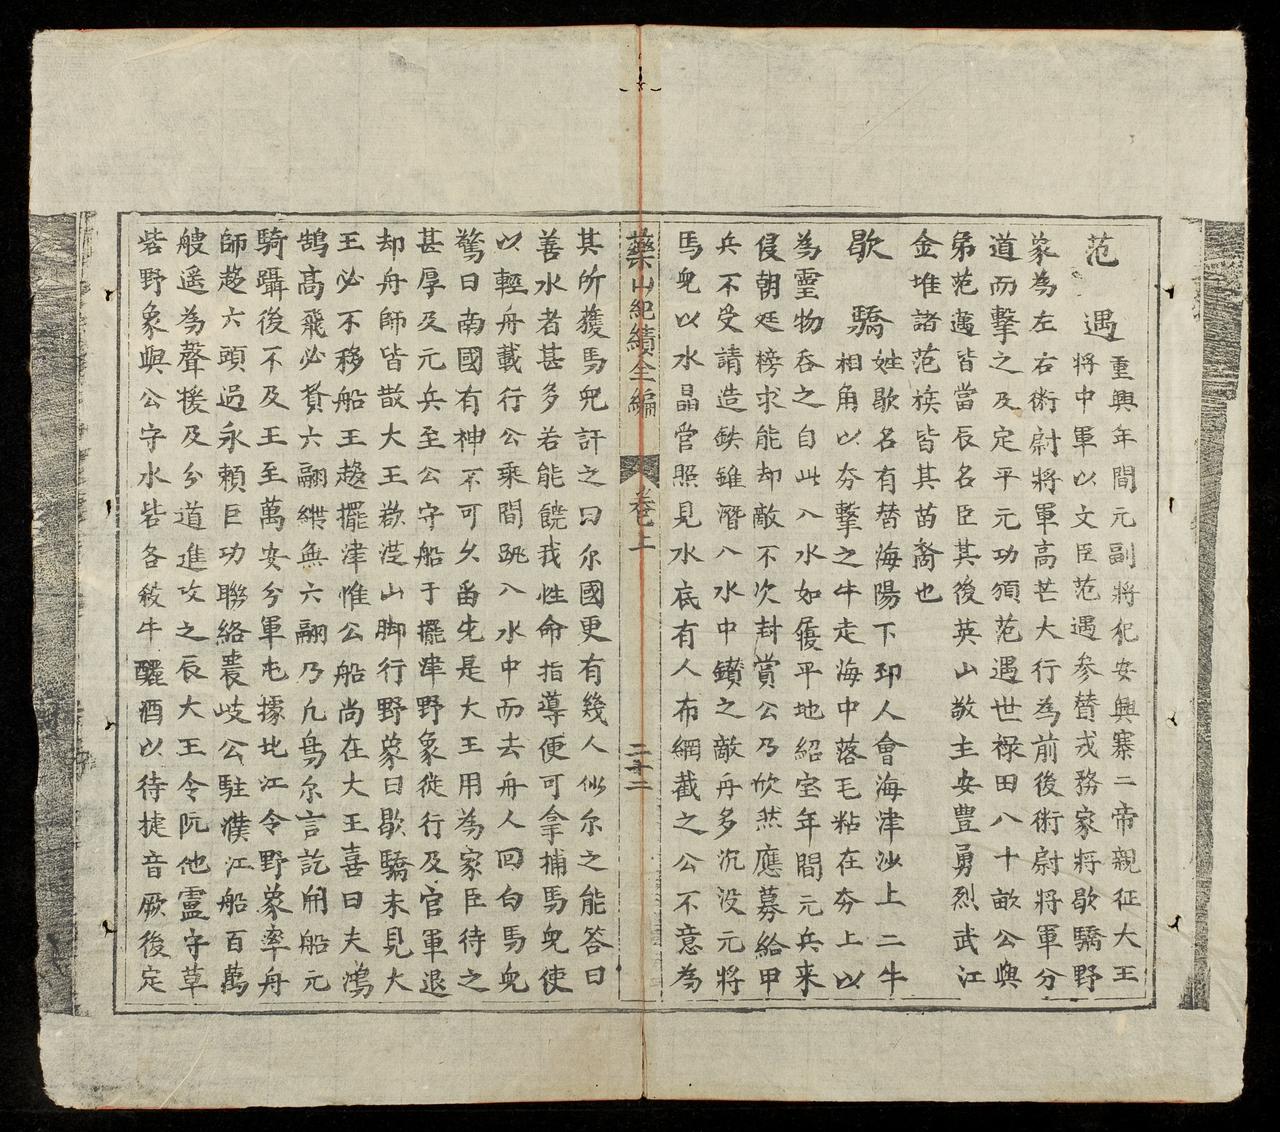 范遇重興年間元副將犯安興寨二帝親征大王
將中軍以文臣范遇參贊戎務家將歇驕野
象為左右術尉將軍高芒大行為前後術尉將軍分
道而擊之及定平元功頒范遇世祿田八十畝公與
弟范邁皆當辰名臣其後英山敬主安豊勇烈武江
金堆諸范族皆其苗裔也
歇驕姓歇名有替海陽下邳人會海津沙上二牛
相角以夯擊之牛走海中落毛粘在夯上以
為靈物吞之自此入水如履平地紹宝年間元兵来
侵朝廷榜求能却敵不次封賞公乃欣然應募給甲
兵不受請造鉄錐潛入水中鑚之敵舟多沉没元將
馬兒以水晶管照見水底有人布網截之公不意為
藥山紀績全編 卷之上 二十二
其所獲馬兒訐之曰尔國更有幾人似尔之能答曰
善水者甚多若能饒我性命指導便可拿捕馬兒使
以輕舟載行公乘間跳入水中而去舟人回白馬兒
驚曰南國有神不可久畱先是大王用為家臣待之
甚厚及元兵至公守船于擺津野象從行及官軍退
却舟師皆散大王欲從山脚行野象曰歇驕未見大
王必不移船王趍擺津惟公船尚在大王喜曰夫鴻
鵠高飛必資六翮縱無六翮乃凢鳥尔言訖開船元
騎躡後不及王至萬安分軍屯據北江令野象率舟
師趍六頭過永賴巨功聯絡裊岐公駐濮江船百萬
艘遥為聲援及分道進攻之辰大王令阮他靈守草
砦野象與公守水砦各殺牛釃酒以待捷音厥後定